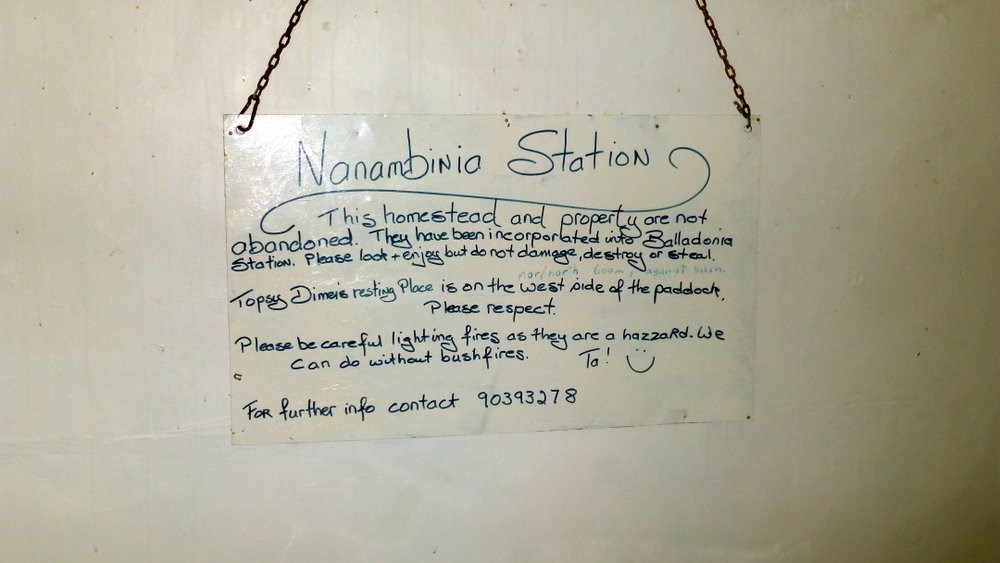 Nanambinia Station
This homestead and property are not
abandoned. They have been incorporated into Balladonia
Station. Please look + enjoy but do not damage, destroy or steal.
Topsy Dimer's resting Place is on the west side of the paddock.
Please respect.
Please be careful lighting fires as they are a hazzard. We
can do without bushfires. Ta!
For further info contact 90393278